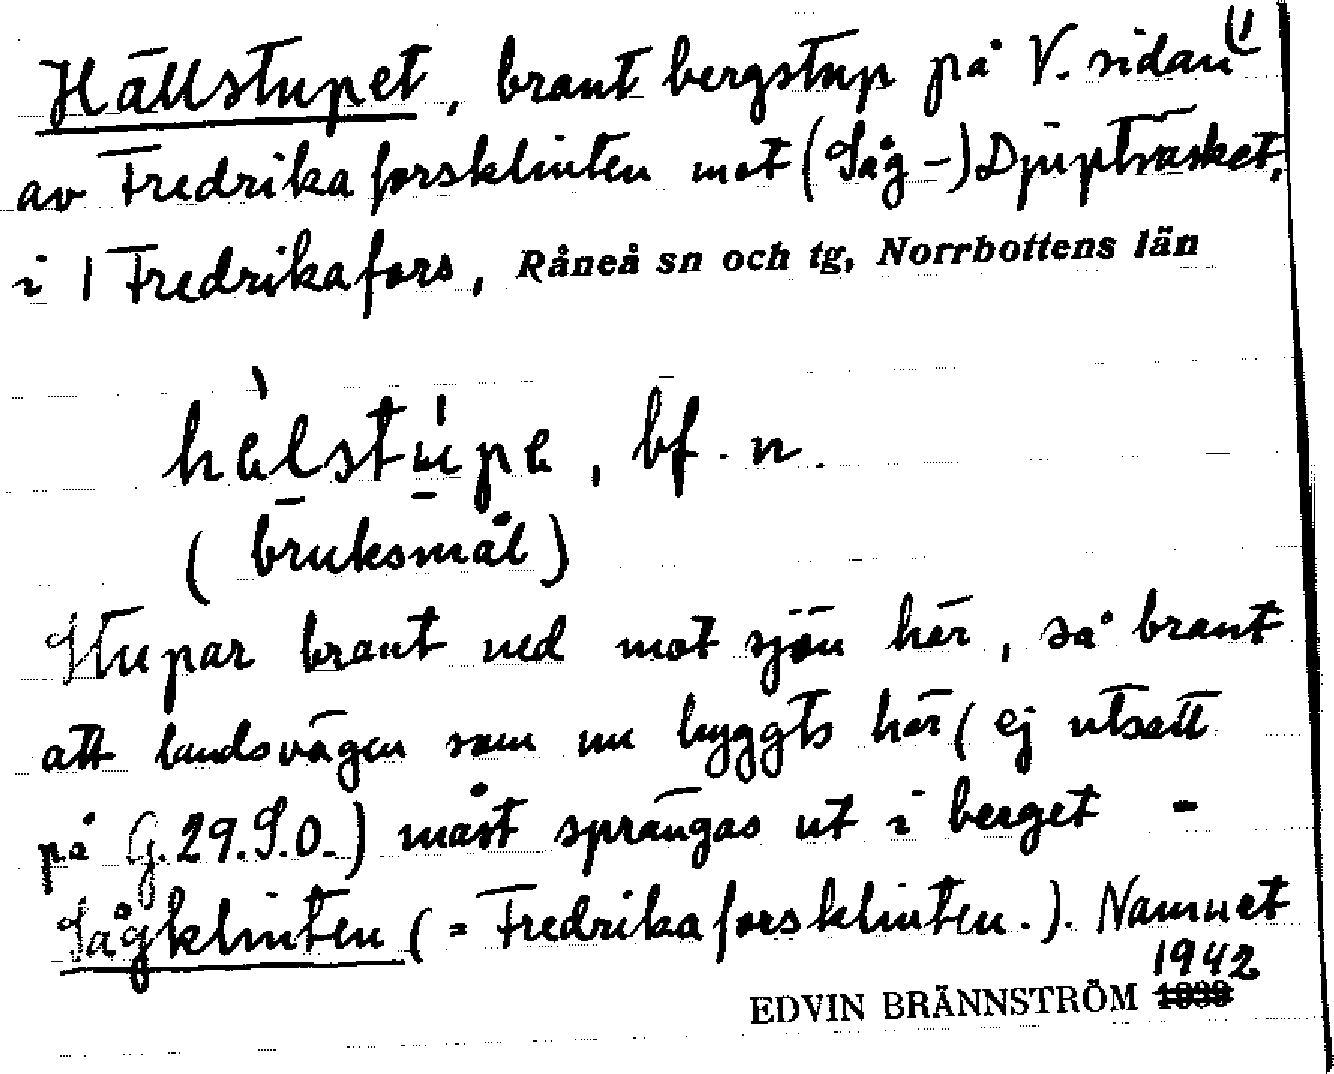 Hällstupet, brant bergstup på V. sidan (1
av Fredrikaforsklinten mot (Såg-) Djupträsket,
i 1 Fredrikafors, Råneå sn och tg, Norrbottens län
bf. n.
(bruksmål)
Stupar brant ned mot sjön här, så brant
att landsvägen som nu byggts här (ej utsatt
på G. 29. S.O.) måst sprängas ut i berget -
Sågklinten (= Fredrikaforsklinten.). Namnet
EDVIN BRÄNNSTRÖM 1942